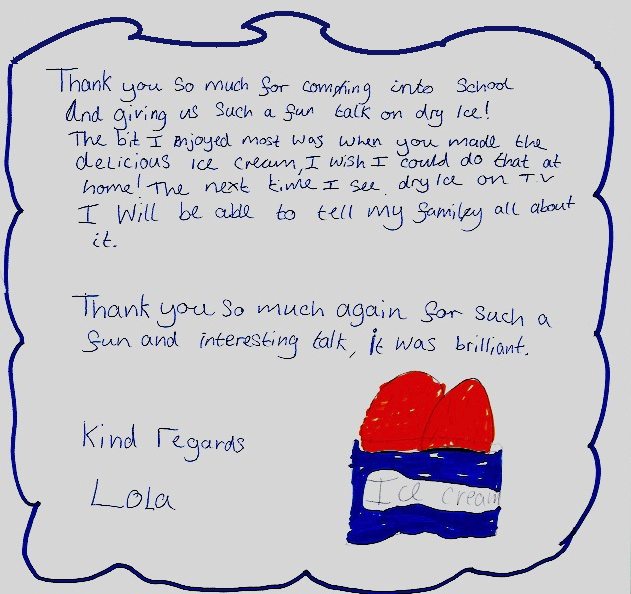 Thank you so much for comphing into School
And giving us Such a fun talk on dry Ice!
The bit I enjoyed most was when you made the
delicious Ice cream, I wish I could do that at
home! The next time I see dry Ice on TV
I Will be able to tell my familey all about
it.
Thank you So much again for Such a
fun and interesting talk, it was brilliant.
Kind regards
Lola
Ice cream